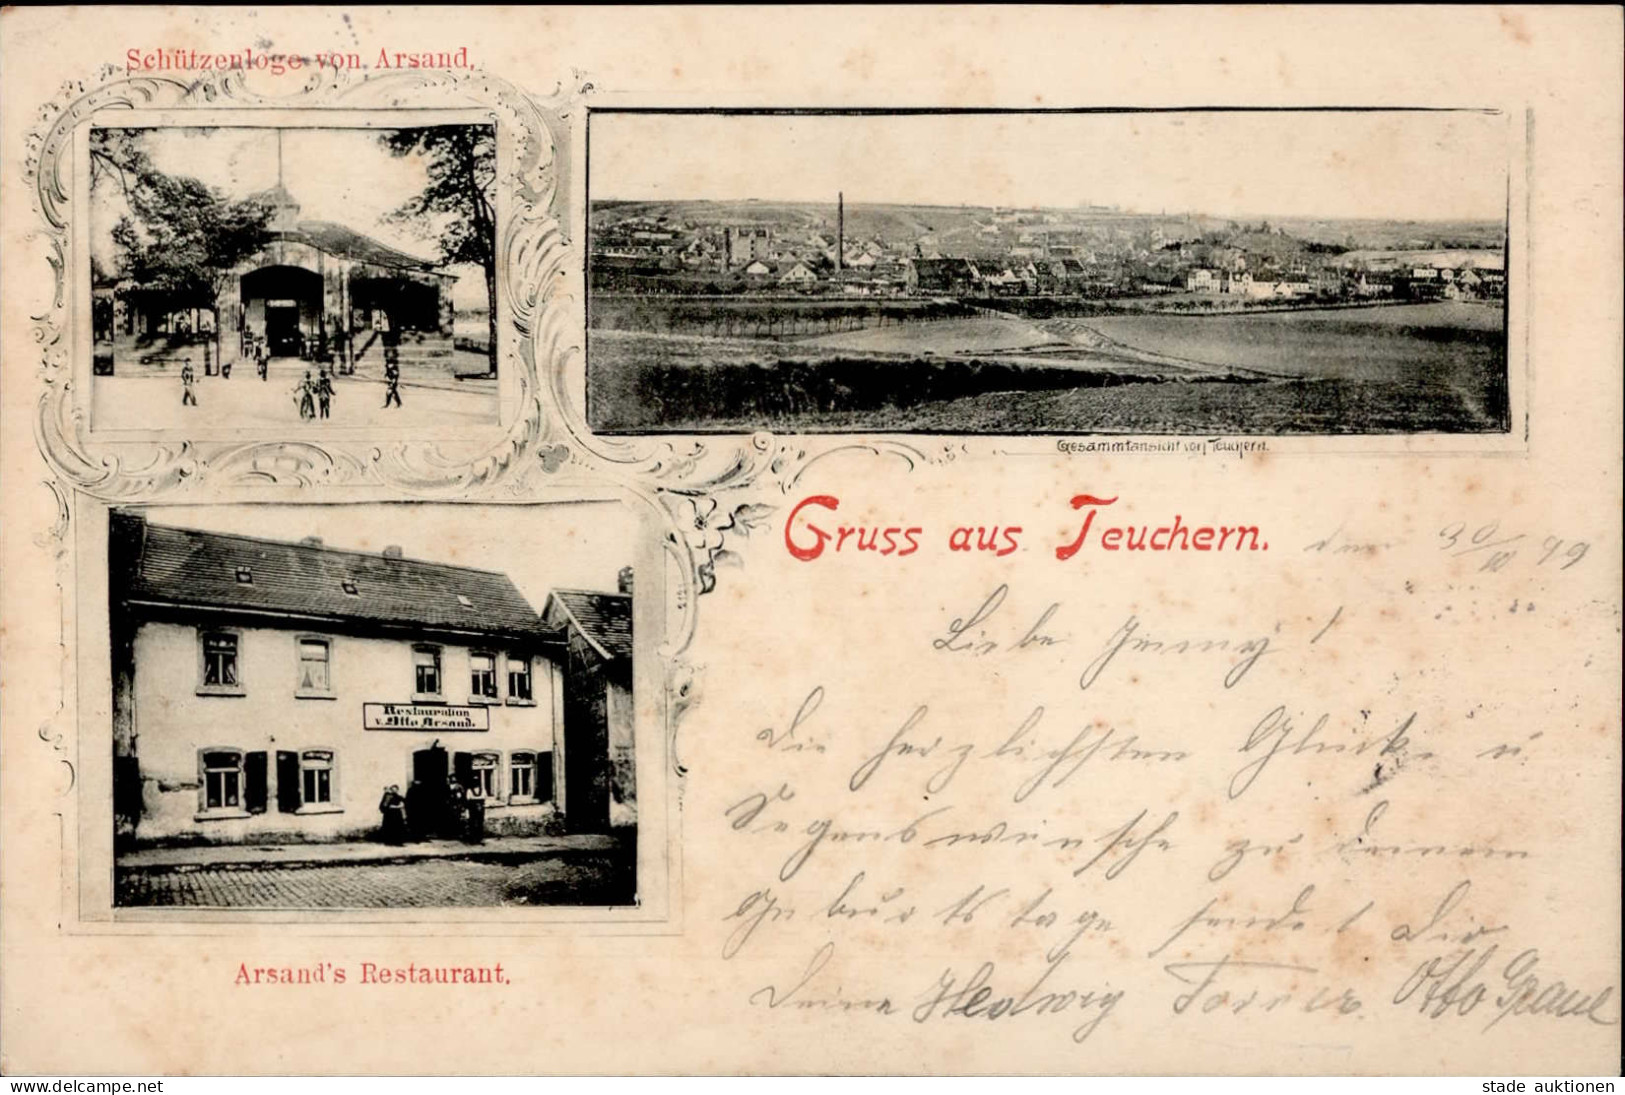 Schützenloge von Arsand.
Gesammtansicht von Teuchern.
Gruss aus Teuchern.
den 30/10 99
Liebe Jenny!
Die herzlichsten Glück- u
Segenswünsche zu Deinem
Geburtstage sendet Dir
Deine Hedwig Otto Graul
Restauration
v. Otto Arsand.
Arsand's Restaurant.
www.delcampe.net
stade auktionen